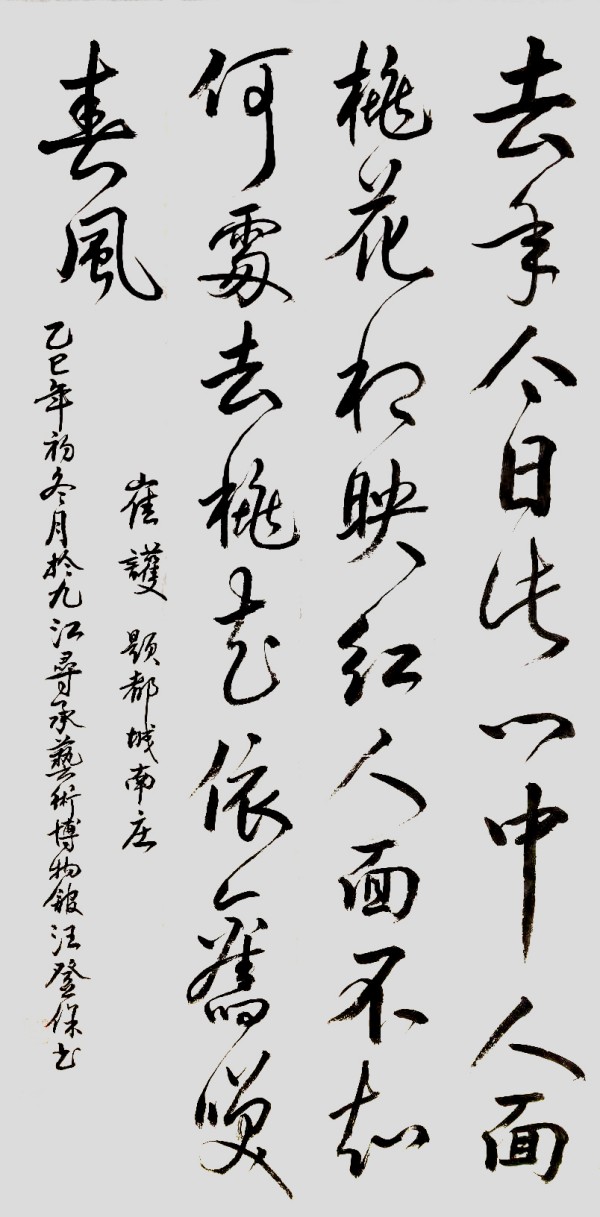 去年今日此门中人面
桃花相映红人面不知
何處去桃花依舊笑
春風
崔護 題都城南庄
乙巳年初冬月於九江尋承藝術博物館汪登保书